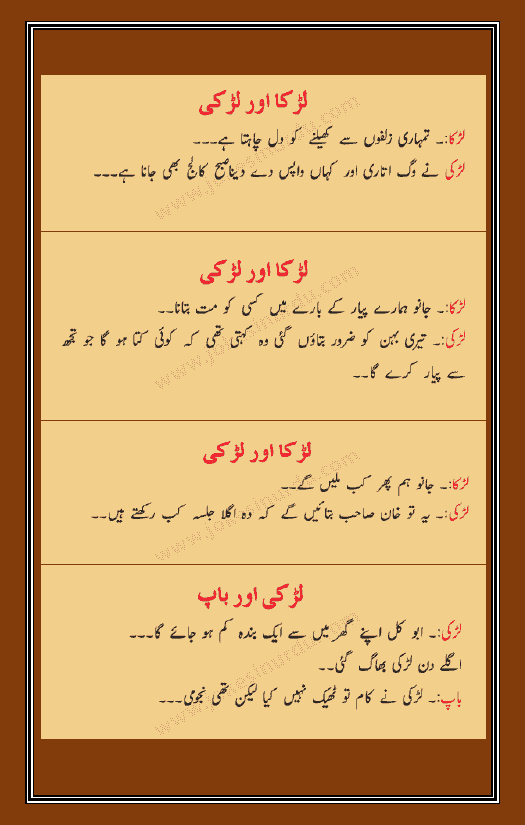 لڑکا اور لڑکی
لڑکا:۔ تمہاری زلفوں سے کھیلنے کو دل چاہتا ہے۔۔۔
لڑکی نے وگ اتاری اور کہاں واپس دے دیناصبح کالج بھی جانا ہے۔۔۔
www.jokesinurdu.com
لڑکا اور لڑکی
لڑکا:۔ جانو ہمارے پیار کے بارے میں کسی کو مت بتانا۔۔
لڑکی:۔ تیری بہن کو ضرور بتاؤں گئی وہ کہتی تھی کہ کوئی کتا ہو گا جو تجھ
سے پیار کرے گا۔۔
www.jokesinurdu.com
لڑکا اور لڑکی
لڑکا:۔ جانو ہم پھر کب ملیں گے۔۔
لڑکی:۔ یہ تو خان صاحب بتائیں گے کہ دہ اگلا جلسہ کب رکھتے ہیں۔۔
www.jokesinurdu.com
لڑکی اور باپ
لڑکی:۔ ابو کل اپنے گھر میں سے ایک بندہ کم ہو جائے گا۔۔۔
اگلے دن لڑکی بھاگ گئی۔۔
باپ:۔ لڑکی نے کام تو ٹھیک نہیں کیا لیکن تھی نجومی۔۔۔
www.jokesinurdu.com